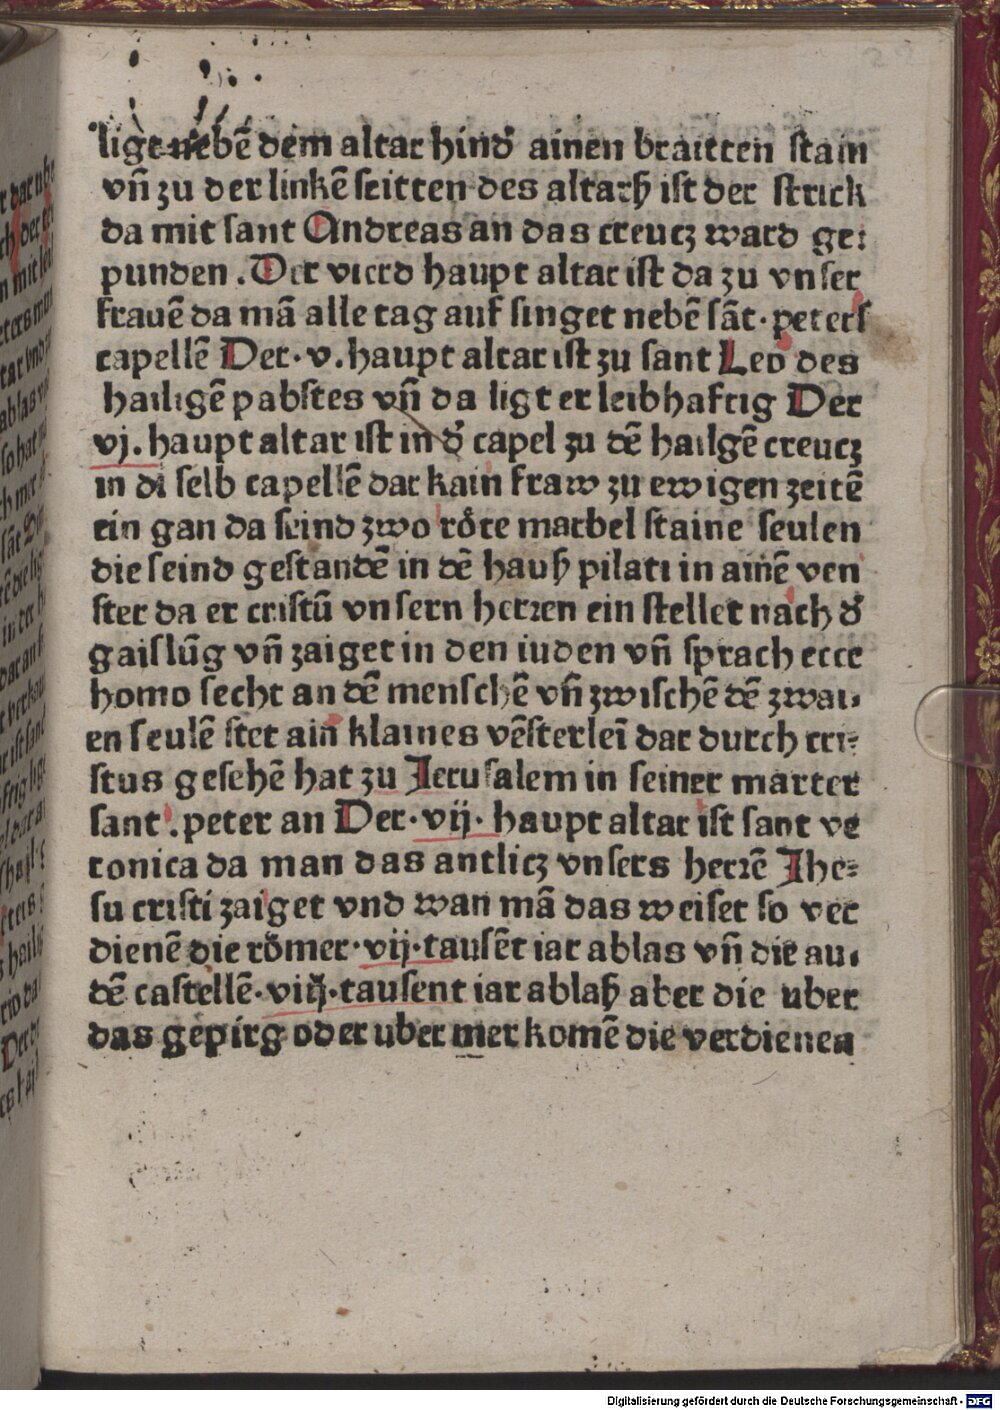 ligt nebē dem altar hind᷑ ainen braitten stain
vñ zu der linkē seitten des altarß ist der strick
da mit sant Andreas an das creucz ward ge:
punden . Der vierd haupt altar ist da zu vnser
frauē da mā alle tag auf singet nebē sāt · peters
capellē Der · v . haupt altar ist zu sant Leo des
hailigē pabstes vñ da ligt er leibhaftig Der
vj . haupt altar ist in d᷑ capel zu dē hailgē creucz
in di selb capellē dar kain fraw zu ewigen zeitē
ein gan da seind zwo röte marbel staine seulen
die seind gestandē in dē hauß pilati in ainē ven
ster da er cristū vnsern herren ein stellet nach d᷑
gaislūg vñ zaiget in den iuden vñ sprach ecce
homo secht an dē menschē vñ zwischē dē zwai-
en seulē stet ain klaines vēsterlei dar durch cri-
stus gesehē hat zu Jerusalem in seiner marter
sant . peter an Der · vij · haupt altar ist sant ve
ronica da man das antlicz vnsers herrē Jhe-
su cristi zaiget vnd wan mā das weiset so ver
dienē die römer · vij · tausēt iar ablas vñ die au-
dē castellē · viij · tausent iar ablaß aber die uber
das gepirg oder uber mer komē die verdienen
Digitalisierung gefördert durch die Deutsche Forschungsgemeinschaft - DFG